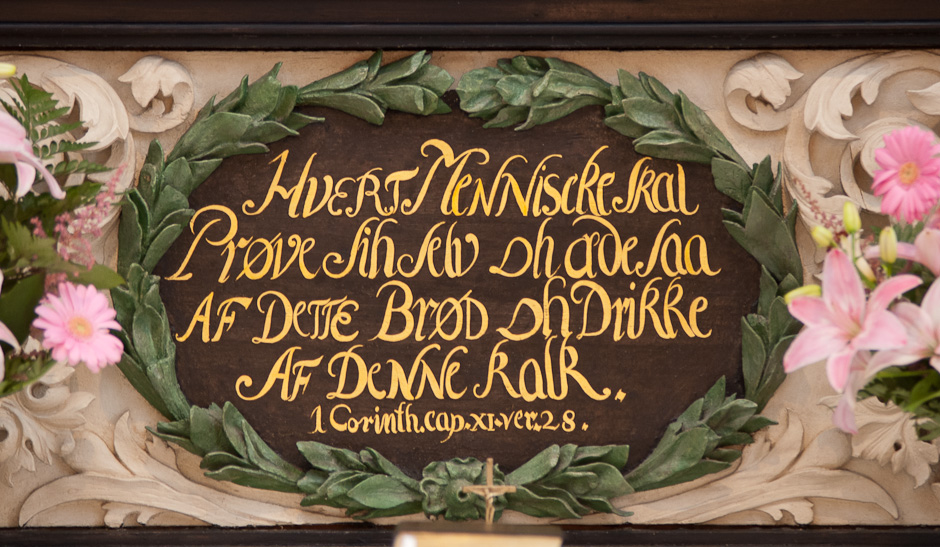 HVERT MENNISCKE skal
Prøve sih selv oh æde saa
AF DETTE BRØD oh DRIKKE
AF DENNE kalk.
1 Corinth.cap.XI.ver.28.